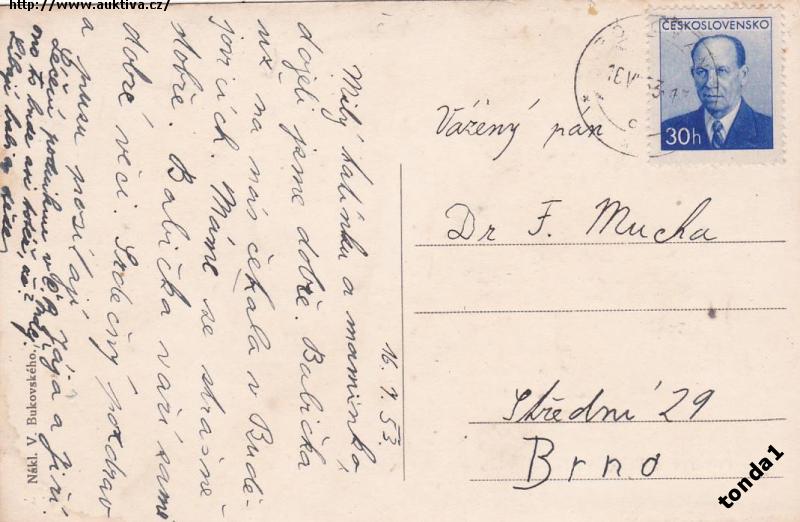 http://www.auktiva.cz/
ČESKOSLOVENSKO
30h
16. 7. 53.
Milý tatínku a maminko
dojeli jsme dobře. Babička
už na nás čekala v Budě-
jovicích. Máme se strašně
dobře. Babička vaří samé
dobré věci. Srdečný pozdrav
a pusu posílají Jája a Jiří.
Vážený pan
Dr F. Mucha
Střední 29
Brno
Nákl. V. Bukovského.
tonda1